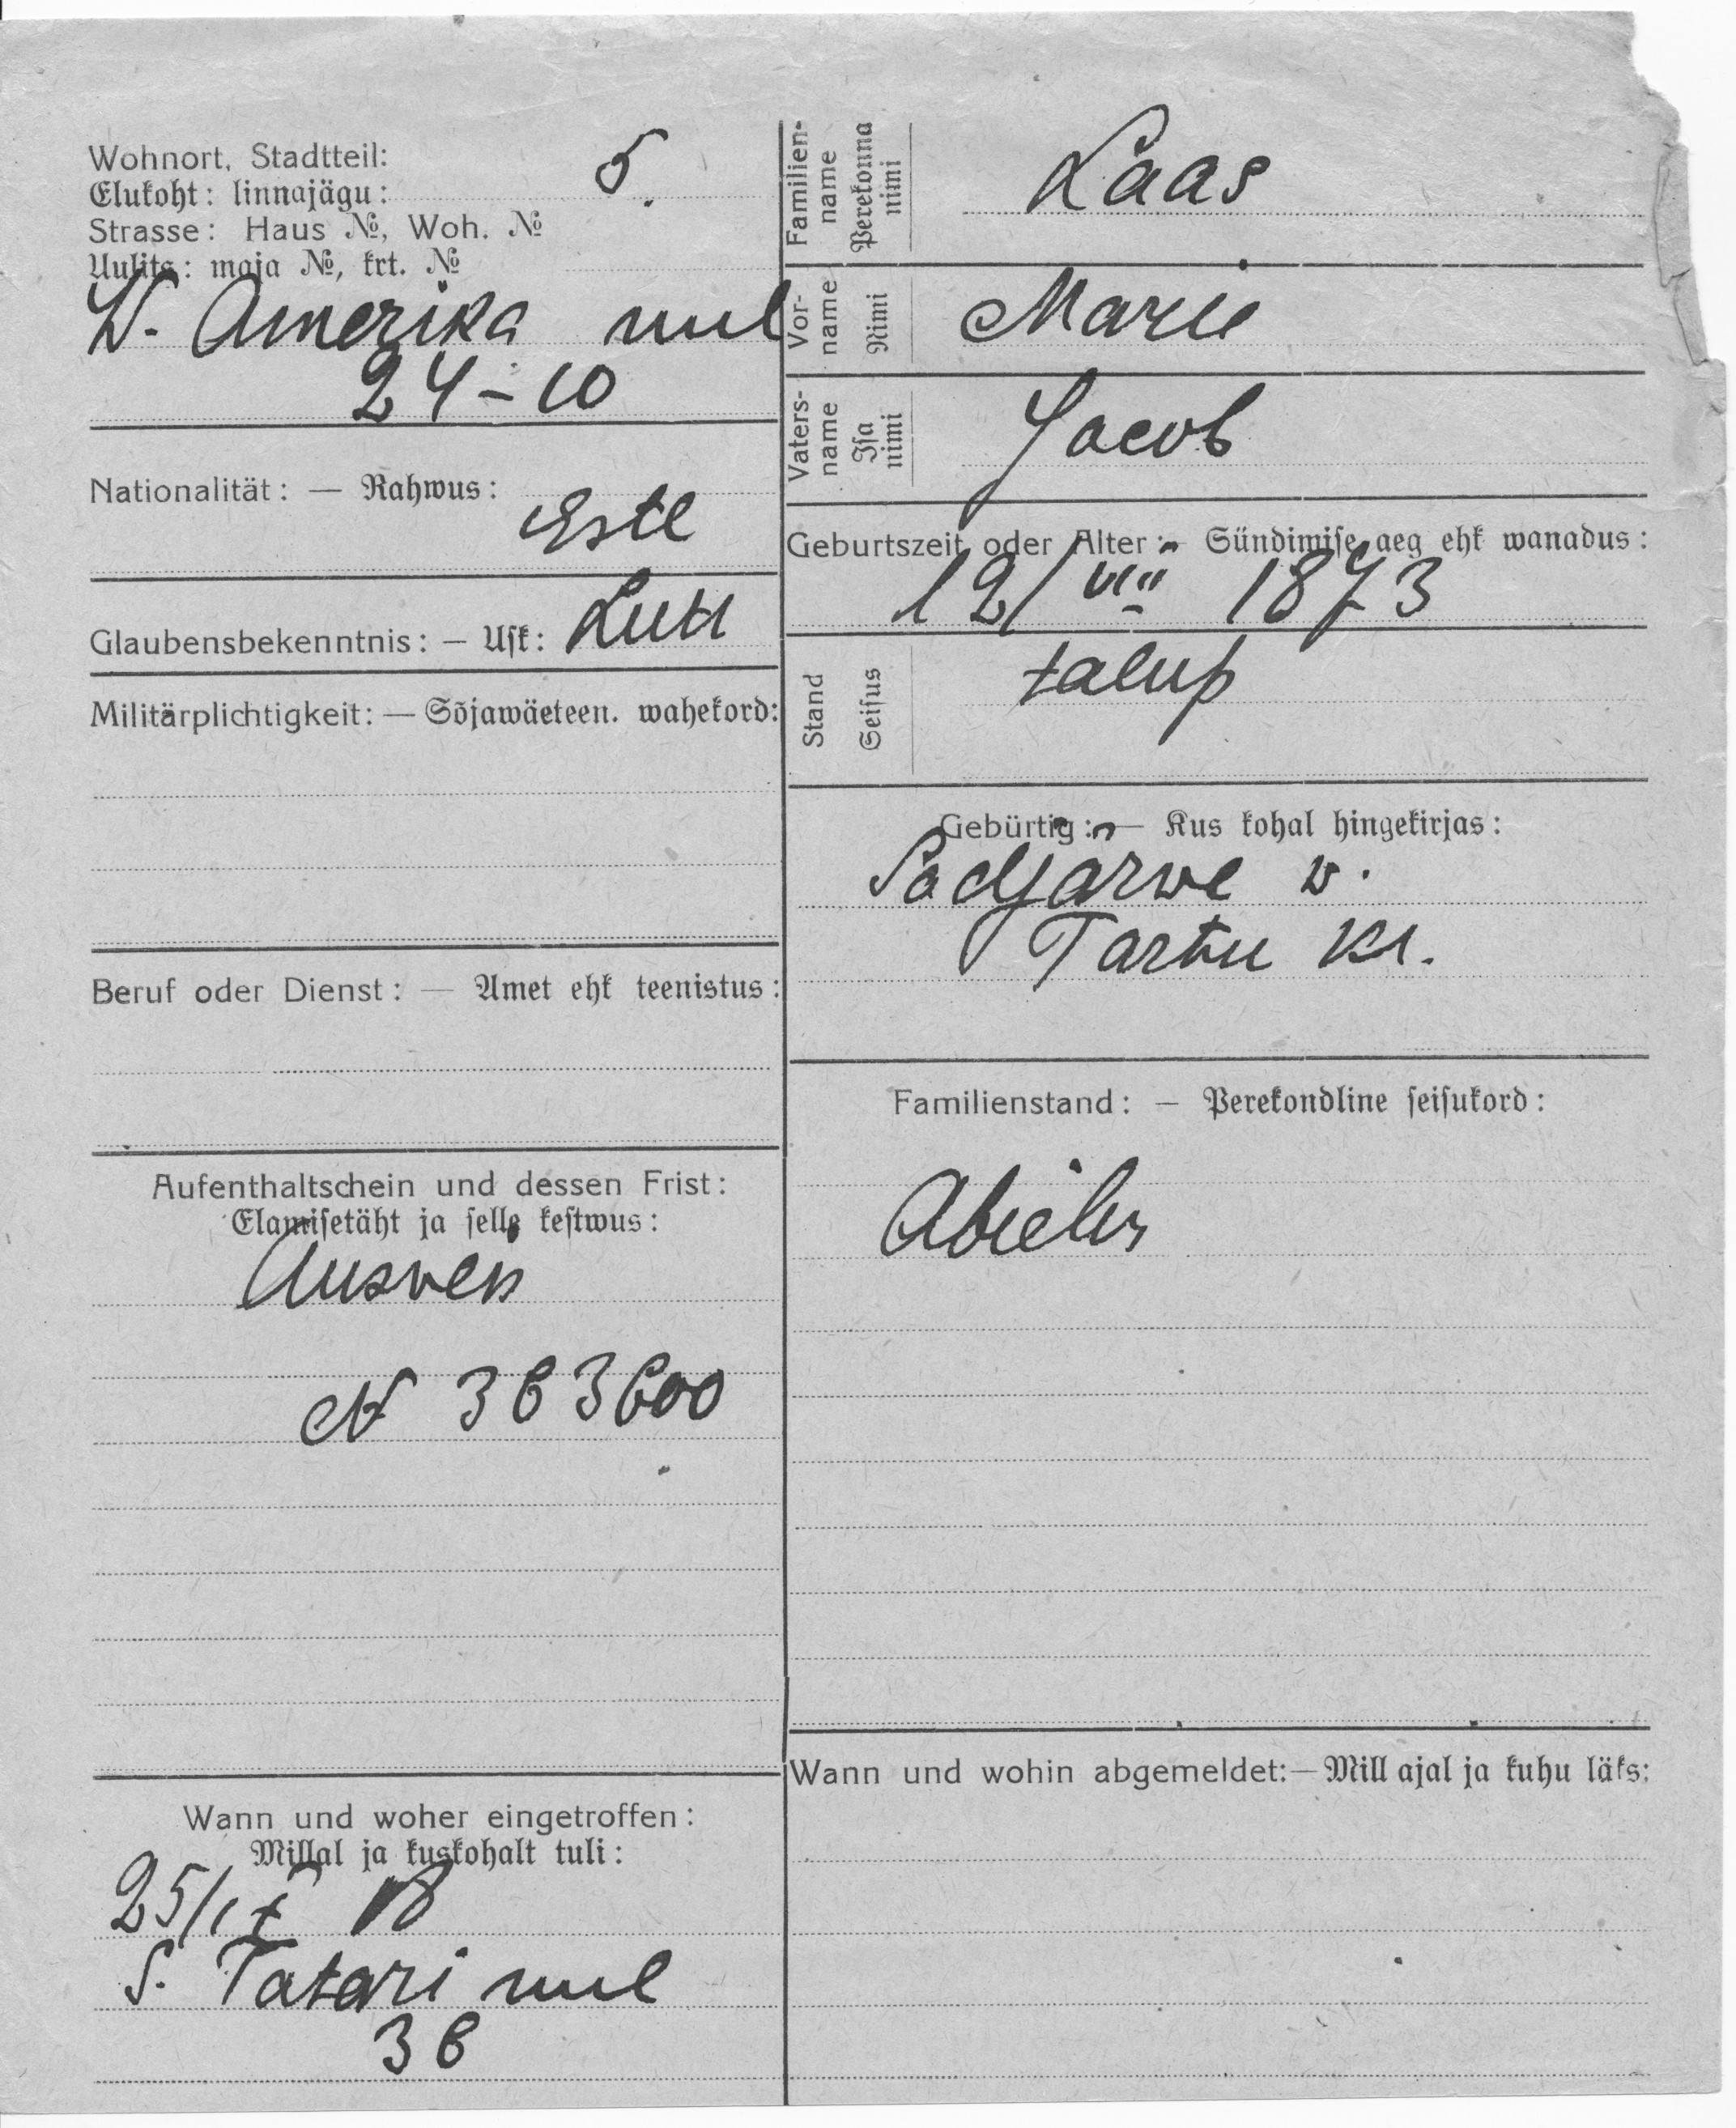 Wohnort, Stadtteil: 5.
Elukoht: linnajägu:
Strasse: Haus №, Woh. №
Uulits: maja №, krt. №
W. Amerika uul
24-10
Nationalität: — Rahwus:
Estl
Glaubensbekenntnis: — Usk: Lutt
Militärplichtigkeit: — Sõjawäeteen. wahekord:
Beruf oder Dienst: — Amet ehk teenistus:
Aufenthaltschein und dessen Frist:
Elamisetäht ja selle kestwus:
Ausveis
N 363600
Wann und woher eingetroffen:
Millal ja kuskohalt tuli:
25/IX 18
S. Tatari uul
36
Familien-
name
Perekonna
nimi
Laas
Vor-
name
Nimi
Marie
Vaters-
name
Isa
nimi
Jacob
Geburtszeit oder Alter: — Sündimise aeg ehk wanadus:
12/VIII 1873
Stand
Seisus
talup
Gebürtig: — Kus kohal hingekirjas:
Sadjärwe w.
Tartu kr.
Familienstand: — Perekondline seisukord:
Abielus
Wann und wohin abgemeldet: — Mill ajal ja kuhu läks: